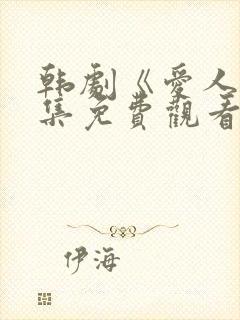 韩劇《愛人
集免費觀看
伊海